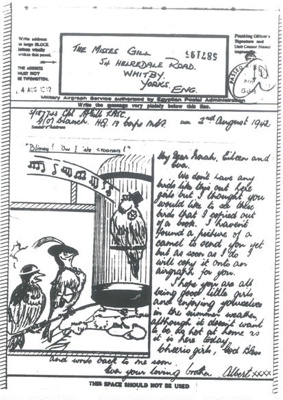 Write address
in large BLOCK
letters wholly
within this
panel.
THE ADDRESS
MUST NOT
BE TYPEWRITTEN.
THE MISSES GILL
54 HELREDALE ROAD.
WHITBY.
YORKS.
ENG.
Censoring Officer's
Signature and
Unit Censor Stamp
Military Airgraph Service authorised by Egyptian Postal Administration
Write the message very plainly below this line.
Sender's Address
Date 2nd August 1942
"Blimey! Do I 'ate crooners!"
My Dear Norah, Eileen and
Eva.
We don't have any
birds like this out here
pets but I thought you
would like to see this
bird that I copied out
of a book. I haven't
found a picture of a
camel to send you yet
but as soon as I do I
will copy it onto an
airgraph for you.
I hope you are all
being good little girls
and enjoying yourselves
in the summer weather,
although it doesn't want
to be as hot at home as
it is here today.
Cheerio girls, God Bless
and write back to me soon.
Ever your loving brother Albert xxxx
THIS SPACE SHOULD NOT BE USED